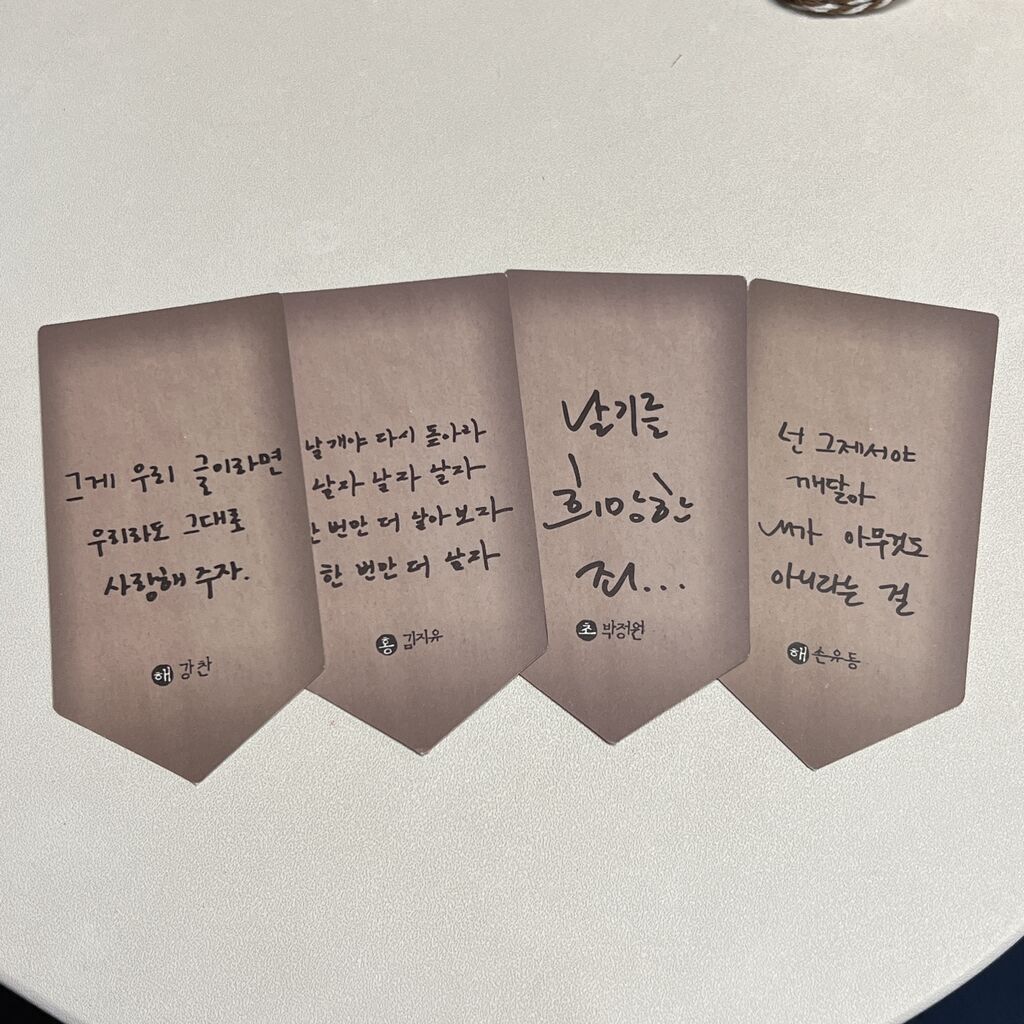 그게 우리 글이라면
우리라도 그대로
사랑해 주자.
해 강찬
날개야 다시 돋아라
날자 날자 날자
한 번만 더 날아보자
한 번만 더 날자
홍 김지유
날기를
희망한
죄...
초 박정원
넌 그제서야
깨달아
내가 아무것도
아니라는 걸
해 손유동